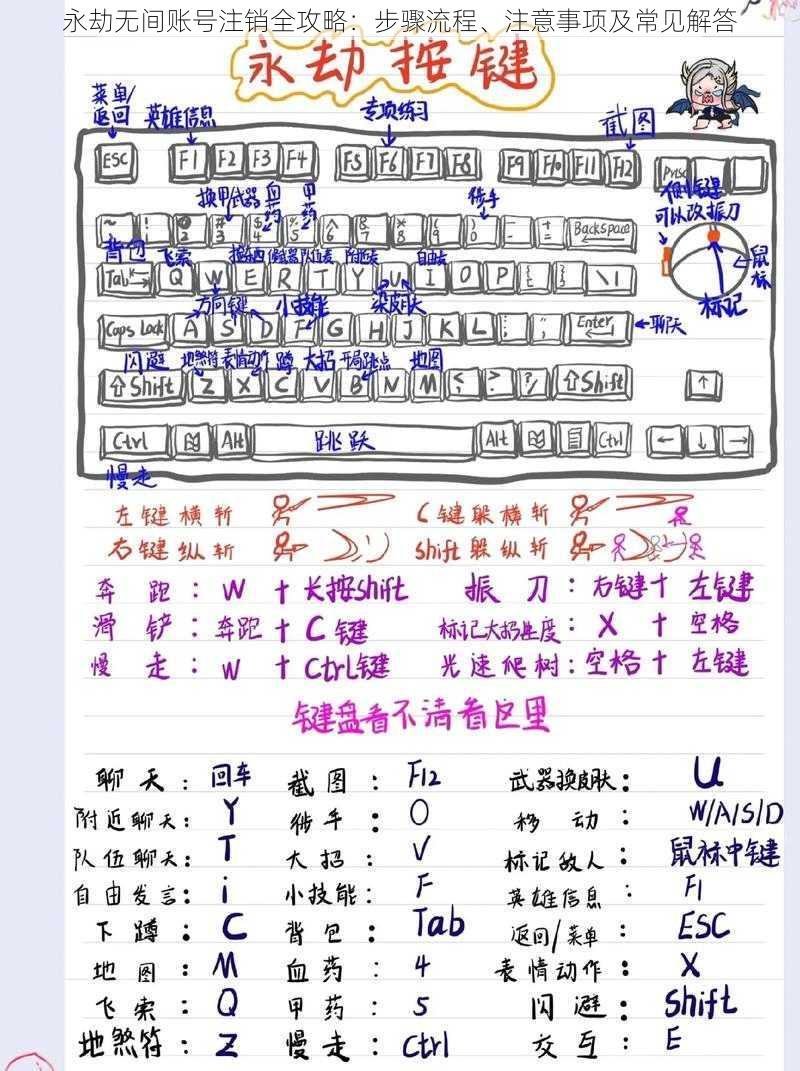 永劫无间账号注销全攻略：步骤流程、注意事项及常见解答
永劫按键
菜单/
返回 英雄信息 专项练习 截图
ESC F1 F2 F3 F4 F5 F6 F7 F8 F9 F10 F11 F12 Prtsc
侧键
可以改振刀
换甲 武器 血药 甲药 徒手
~ ! 2 #3 $4 %5 ^6 &7 *8 (9 )0 - += Backspace
背包 飞索 队伍发 附近发 自由发
鼠标
Tab Q W E R T Y U I O P { } \ |
方向键 小技能 换皮肤
标记
Caps Lock A S D F G H J K L ; " Enter
聊天
闪避 地煞符 表情动作 蹲 大招 开局跳点 地图
⇧Shift Z X C V B N M < ? ?/ ⇧Shift ↑
Ctrl Alt 跳跃 Alt Ctrl ← ↓ →
慢走
左键横斩 C键躲横斩
右键纵斩 shift躲纵斩
奔跑：W + 长按shift 振刀：右键+左键
滑铲：奔跑+C键 标记大招进度：X+空格
慢走：W+Ctrl键 光速爬树：空格+左键
键盘看不清看这里
聊天：回车 截图：F12 武器换皮肤：U
附近聊天：Y 徒手：O 移动：W/A/S/D
队伍聊天：T 大招：V 标记敌人：鼠标中键
自由发言：i 小技能：F 英雄信息：F1
下蹲：C 背包：Tab 返回/菜单：ESC
地图：M 血药：4 表情动作：X
飞索：Q 甲药：5 闪避：Shift
地煞符：Z 慢走：Ctrl 交互：E